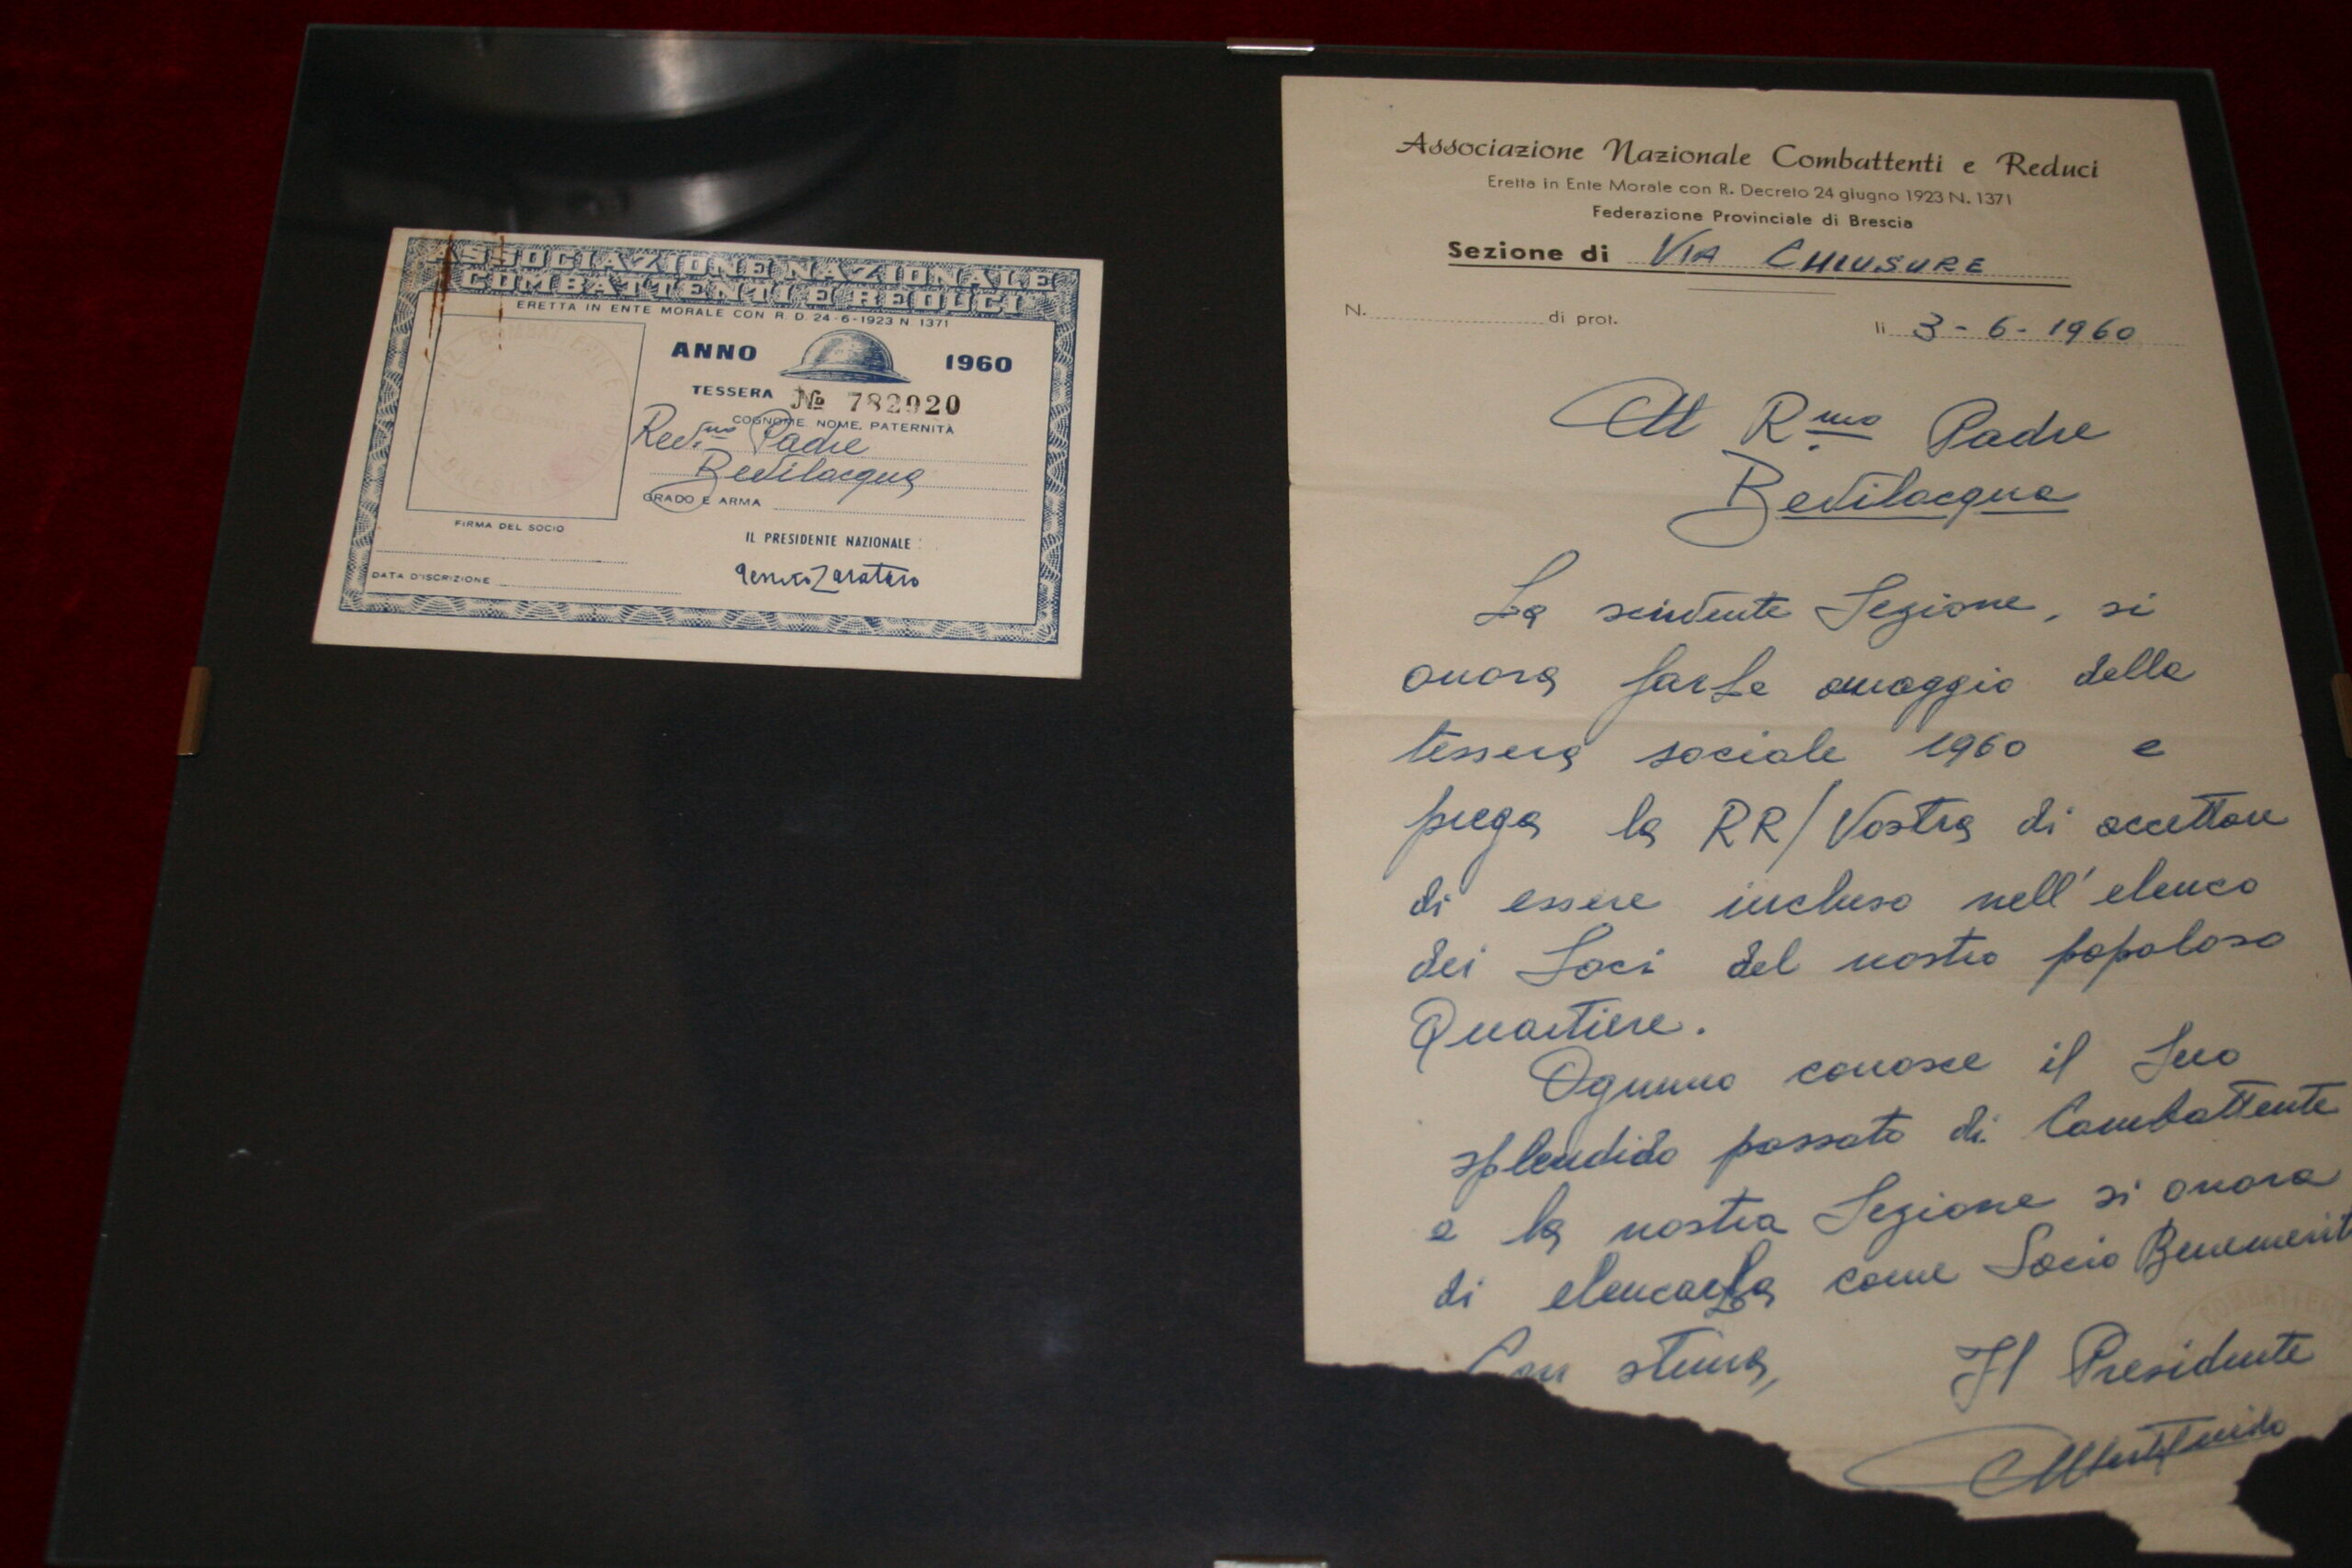 ASSOCIAZIONE NAZIONALE
COMBATTENTI E REDUCI
ERETTA IN ENTE MORALE CON R. D. 24-6-1923 N 1371
ANNO 1960
TESSERA No 782920
COGNOME, NOME, PATERNITÀ
Rev.mo Padre
Bevilacqua
GRADO E ARMA
FIRMA DEL SOCIO
IL PRESIDENTE NAZIONALE
DATA D'ISCRIZIONE
Associazione Nazionale Combattenti e Reduci
Eretta in Ente Morale con R. Decreto 24 giugno 1923 N. 1371
Federazione Provinciale di Brescia
Sezione di VIA CHIUSURE
N. di prot. li 3-6-1960
Al Rmo Padre
Bevilacqua
La scrivente Sezione, si
onora farLe omaggio della
tessera sociale 1960 e
prega la RR/Vostra di accettare
di essere incluso nell'elenco
dei Soci del nostro popoloso
Quartiere.
Ognuno conosce il Suo
splendido passato di Combattente
e la nostra Sezione si onora
di elencarLa come Socio Benemerit
Con stima, Il Presidente